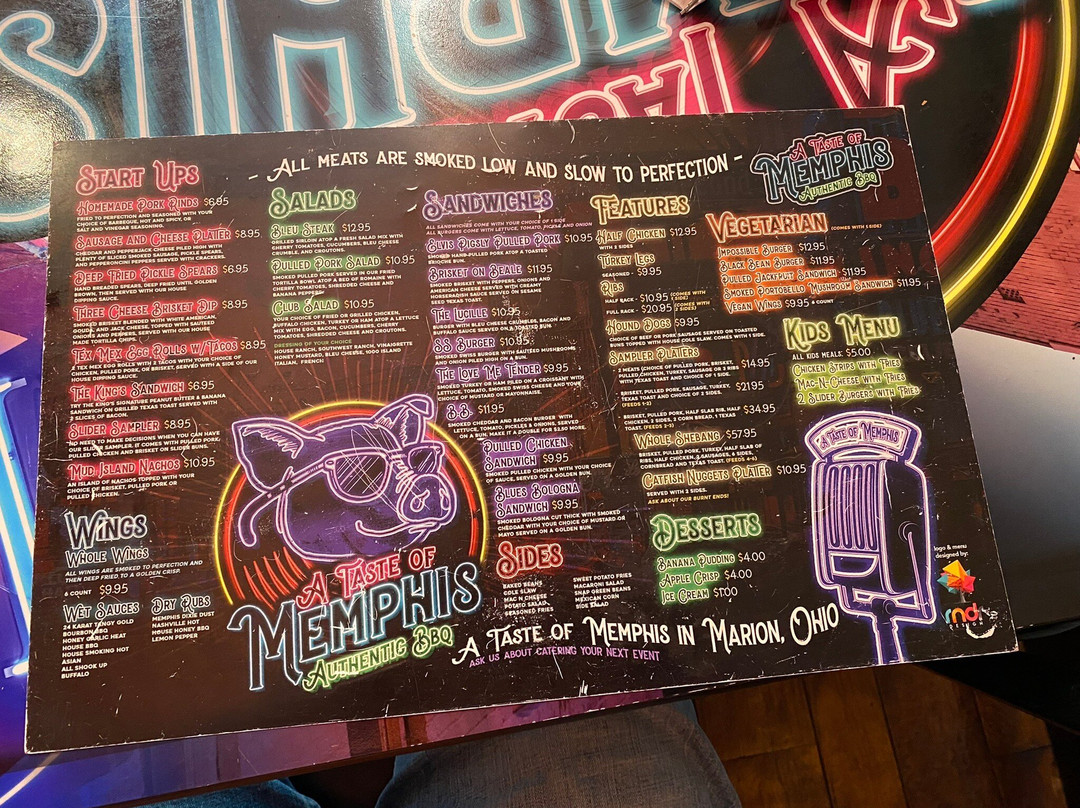 - All meats are smoked low and slow to perfection -
A Taste of
Memphis
Authentic BBQ
Start Ups
Homemade Pork Rinds $6.95
Fried to perfection and seasoned with your
choice of barbeque, hot and spicy, or
salt and vinegar seasoning.
Sausage and Cheese Platter $8.95
Cheddar and pepperjack cheese piled high with
plenty of sliced smoked sausage, pickle spears,
and pepperoncini peppers served with crackers.
Deep Fried Pickle Spears $6.95
Hand breaded spears, deep fried until golden
brown, then served with our house
dipping sauce.
Three Cheese Brisket Dip $8.95
Smoked brisket blended with white American,
gouda, and jack cheese, topped with sauteed
onions and peppers, served with our house
made tortilla chips.
Tex Mex Egg Rolls w/Tacos $8.95
2 Tex Mex egg rolls with 2 tacos with your choice of
chicken, pulled pork, or brisket, served with a side of our
house dipping sauce.
The King's Sandwich $6.95
Try the King's signature peanut butter & banana
sandwich on grilled Texas toast served with
2 slices of bacon.
Slider Sampler $8.95
No need to make decisions when you can have
our slider sampler. It comes with pulled pork,
pulled chicken and brisket on slider buns.
Mud Island Nachos $10.95
An island of nachos topped with your
choice of brisket, pulled pork or
pulled chicken.
Wings
Whole Wings
All wings are smoked to perfection and
then deep fried to a golden crisp.
6 count $9.95
Wet Sauces
24 Karat Tangy Gold
Bourbon BBQ
Honey Garlic Heat
House BBQ
House Smoking Hot
Asian
All Shook Up
Buffalo
Dry Rubs
Memphis Dixie Dust
Nashville Hot
House Honey BBQ
Lemon Pepper
Salads
Bleu Steak $12.95
Grilled sirloin atop a house salad mix with
cherry tomatoes, cucumbers, bleu cheese
crumble, and croutons.
Pulled Pork Salad $10.95
Smoked pulled pork served in our fried
tortilla bowl atop a bed of romaine with
cherry tomatoes, shredded cheese and
banana peppers.
Club Salad $10.95
Your choice of fried or grilled chicken,
buffalo chicken, turkey or ham atop a lettuce
mix with egg, bacon, cucumbers, cherry
tomatoes, shredded cheese and croutons.
Dressing of your choice
House ranch, southwest ranch, vinaigrette
honey mustard, bleu cheese, 1000 island
italian, french
A Taste of
Memphis
Authentic BBQ
Sandwiches
All sandwiches come with your choice of 1 side
as well with lettuce, tomato, pickle and onion
Elvis Pigsly Pulled Pork $10.95
Smoked hand-pulled pork atop a toasted
brioche bun.
Brisket on Beale $11.95
Smoked brisket with peppers, onions and
American cheese served with creamy
horseradish sauce served on sesame
seed Texas toast.
The Lucille $10.95
Burger with bleu cheese crumbles, bacon and
buffalo sauce served on a toasted bun.
S.S. Burger $10.95
Smoked swiss burger with sauteed mushrooms
and onion piled high on a bun.
The Love Me Tender $9.95
Smoked turkey or ham piled on a croissant with
lettuce, tomato, smoked swiss cheese and your
choice of mustard or mayonnaise.
B.B. $11.95
Smoked cheddar and bacon burger with
lettuce, tomato, pickles & onions, served
on a bun. Make it a double for $2.50 more.
Pulled Chicken
Sandwich $9.95
Smoked pulled chicken with your choice
of sauce, served on a golden bun.
Blues Bologna
Sandwich $9.95
Smoked bologna cut thick with smoked
cheddar with your choice of mustard or
mayo served on a golden bun.
Sides
Baked Beans
Cole Slaw
Mac N Cheese
Potato Salad
Seasoned Fries
Sweet Potato Fries
Macaroni Salad
Snap Green Beans
Mexican Corn
Side Salad
Features
Half Chicken $12.95
with 2 sides
Turkey Legs
Seasoned - $9.95
Ribs
Half rack - $10.95 (comes with 1 side)
Full rack - $20.95 (comes with 2 sides)
Hound Dogs $9.95
Choice of beef or pork sausage served on toasted
buns topped with house cole slaw. Comes with 1 side.
Sampler Platters
2 meats (choice of pulled pork, brisket, $14.95
pulled chicken, turkey, sausage or 3 ribs
with Texas toast and choice of 1 side.
Brisket, pulled pork, sausage, turkey, $21.95
with Texas toast and choice of 2 sides.
(feeds 1-2)
Brisket, pulled pork, half slab rib, half $34.95
chicken, 2 sides, 2 corn bread, 1 Texas
toast. (feeds 2-3)
Whole Shebang $57.95
Brisket, pulled pork, turkey, half slab of
ribs, half chicken, 2 sausages, 4 sides,
cornbread and Texas toast. (feeds 4-6)
Catfish Nuggets Platter $10.95
Served with 2 sides.
Ask about our burnt ends!
Desserts
Banana Pudding $4.00
Apple Crisp $4.00
Ice Cream $1.00
Vegetarian (comes with 1 side)
Impossible Burger $12.95
Black Bean Burger $11.95
Pulled Jackfruit Sandwich $11.95
Smoked Portobello Mushroom Sandwich $11.95
Vegan Wings $9.95 6 count
Kids Menu
All kids meals $5.00
Chicken Strips with Fries
Mac-N-Cheese with Fries
2 Slider Burgers with Fries
A Taste of Memphis
logo & menu
designed by:
rnd
A Taste of Memphis in Marion, Ohio
Ask us about catering your next event